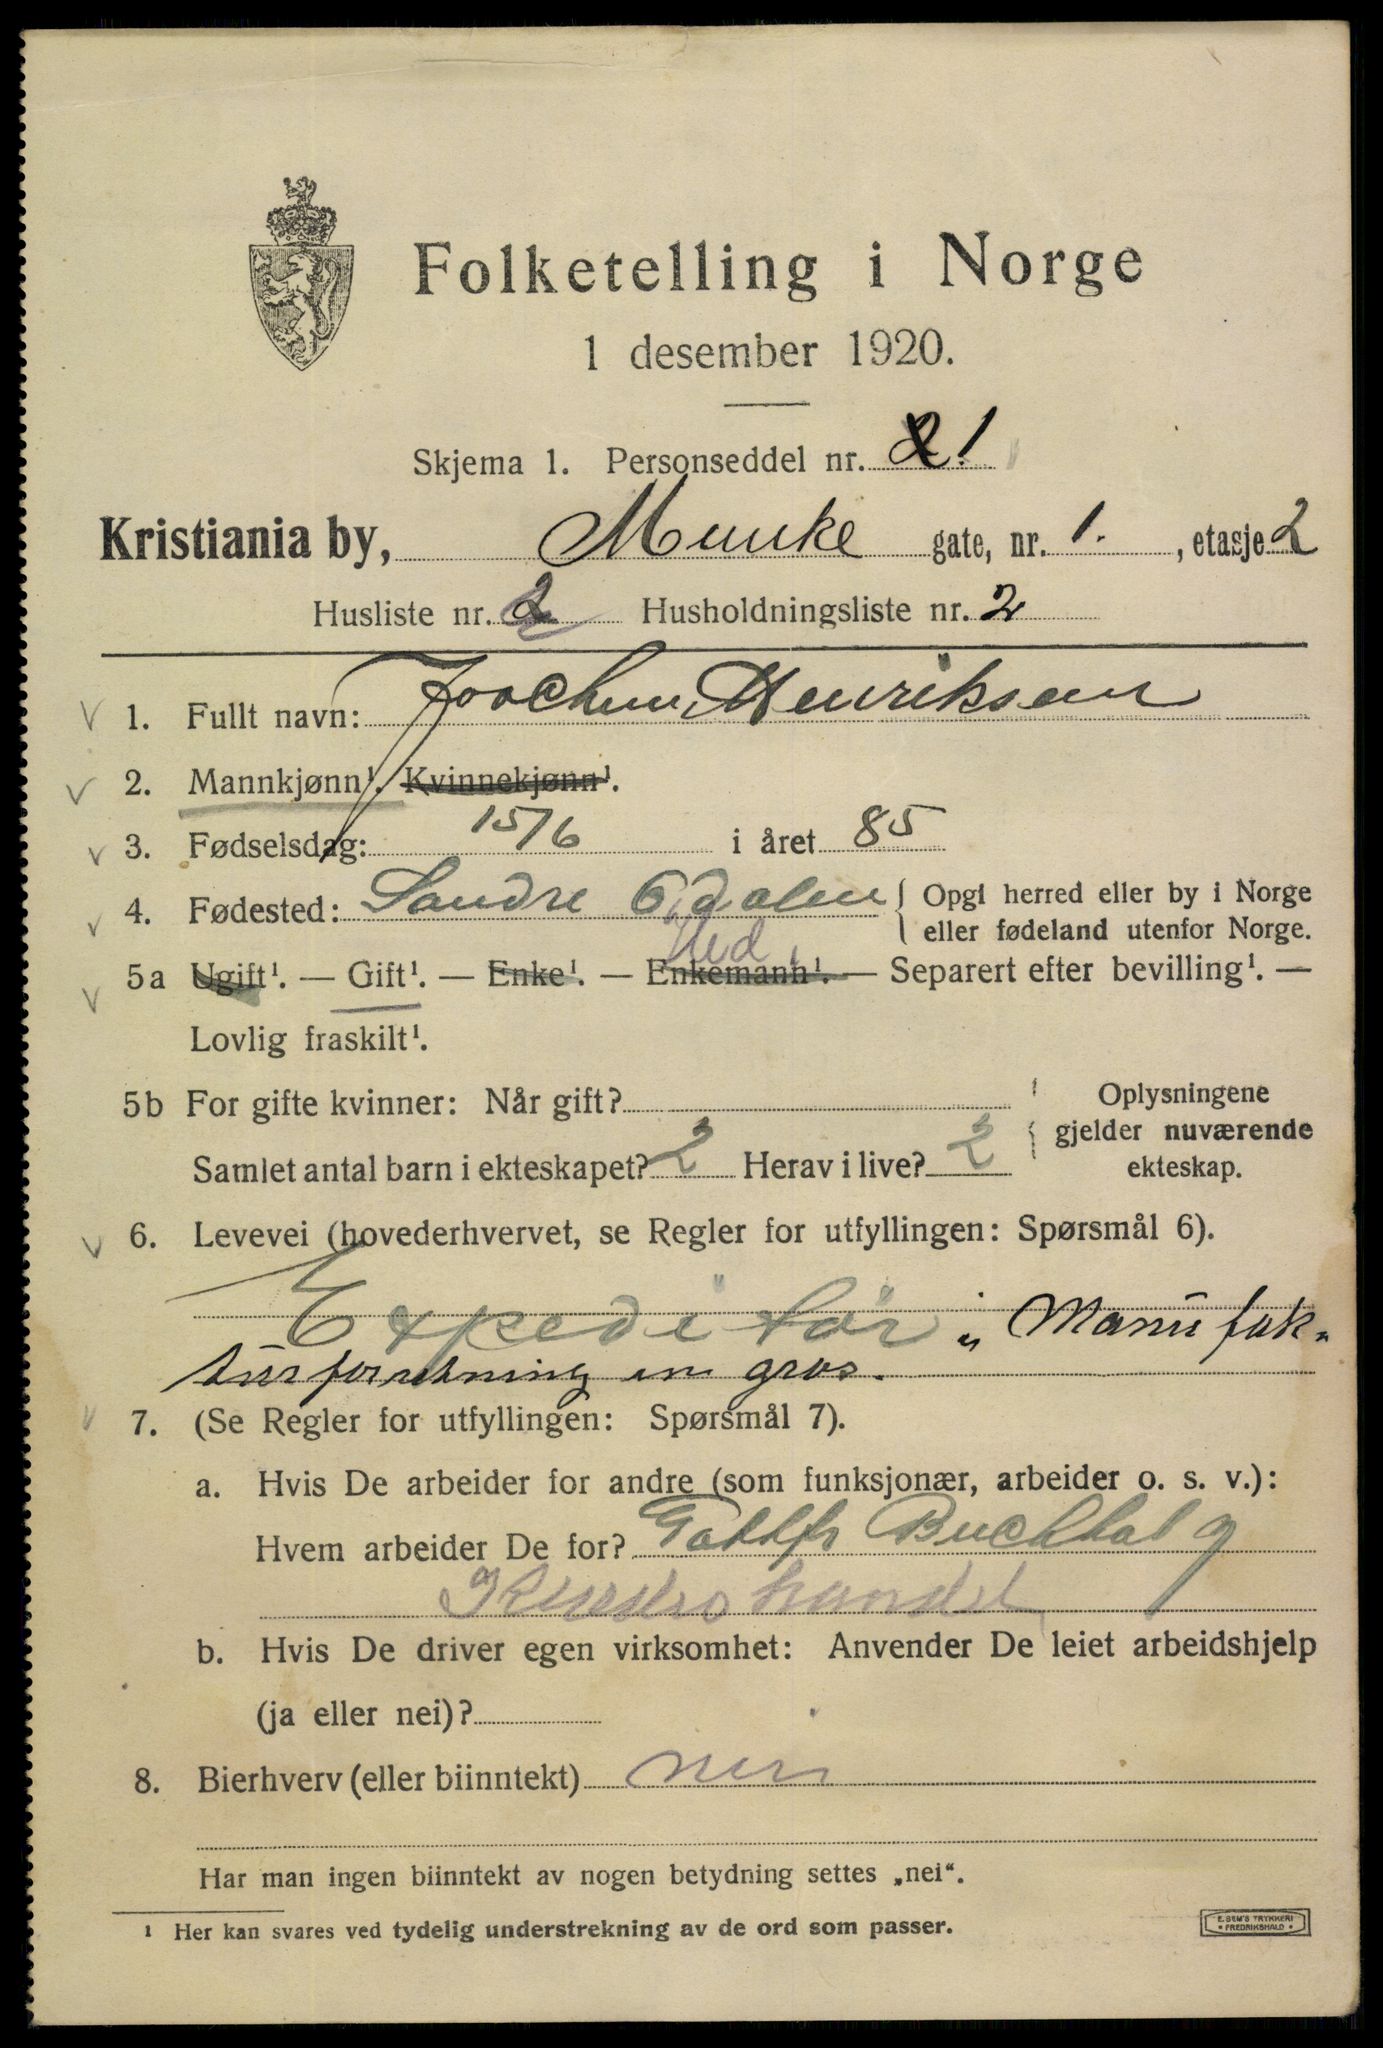 Folketelling i Norge
1 desember 1920.
Skjema 1. Personseddel nr. 2 1
Kristiania by, Munke gate, nr. 1. , etasje 2
Husliste nr. 2 Husholdningsliste nr. 2
1. Fullt navn: Joachim Henriksen
2. Mannkjønn¹. Kvinnekjønn¹.
3. Fødselsdag: 15/6 i året 85
4. Fødested: Søndre Odalen Opgi herred eller by i Norge
eller fødeland utenfor Norge.
Hed.
5a Ugift¹. — Gift¹. — Enke¹. — Enkemann¹. — Separert efter bevilling¹. —
Lovlig fraskilt¹.
5b For gifte kvinner: Når gift? Oplysningene
gjelder nuværende
Samlet antal barn i ekteskapet? 2 Herav i live? 2 ekteskap.
6. Levevei (hovederhvervet, se Regler for utfyllingen: Spørsmål 6).
Expeditør i Manufak-
turforretning en gros.
7. (Se Regler for utfyllingen: Spørsmål 7).
a. Hvis De arbeider for andre (som funksjonær, arbeider o. s. v.):
Hvem arbeider De for? Gottfr Buchholz
b. Hvis De driver egen virksomhet: Anvender De leiet arbeidshjelp
(ja eller nei)?
8. Bierhverv (eller biinntekt) nei
Har man ingen biinntekt av nogen betydning settes „nei“.
¹ Her kan svares ved tydelig understrekning av de ord som passer.
E. SEM'S TRYKKERI
• FREDRIKSHALD •